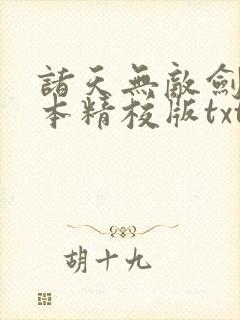 諸天無敵劍
本精校版txt
胡十九